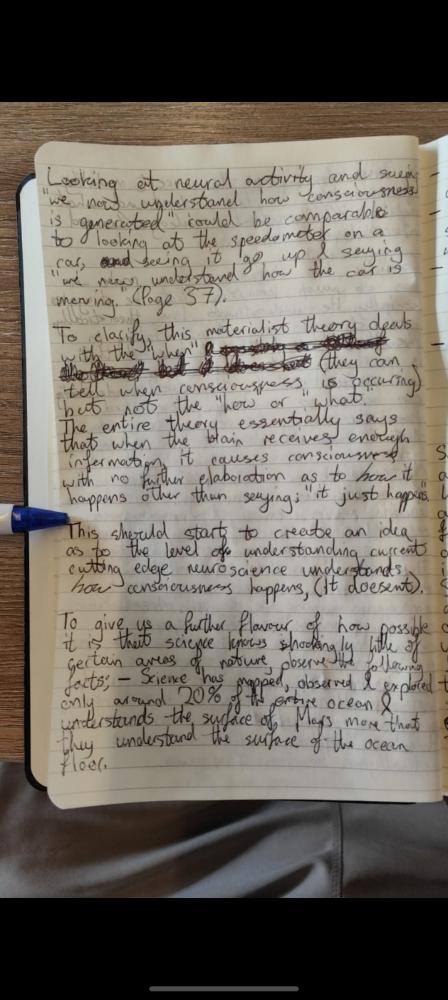 Looking at neural activity and saying
"we now understand how consciousness
is generated" could be comparable
to looking at the speedometer on a
car, and seeing it go up & saying
"we now understand how the car is
moving. (Page 37).
To clarify, this materialist theory deals
with the "when"
(they can
tell when consciousness is occuring)
but not the "how or "what."
The entire theory essentially says
that when the brain receives enough
information, it causes consciousness
with no further elaboration as to how it
happens other than saying; "it just happens".
This should start to create an idea
as to the level of understanding current
cutting edge neuroscience understands
how consciousness happens, (It doesent).
To give us a further flavour of how possible
it is that science knows shockingly little of
certain areas of nature, observe the following
facts; - Science has mapped, observed & explored
only around 20% of the entire ocean &
understands the surface of Mars more that
they understand the surface of the ocean
floor.